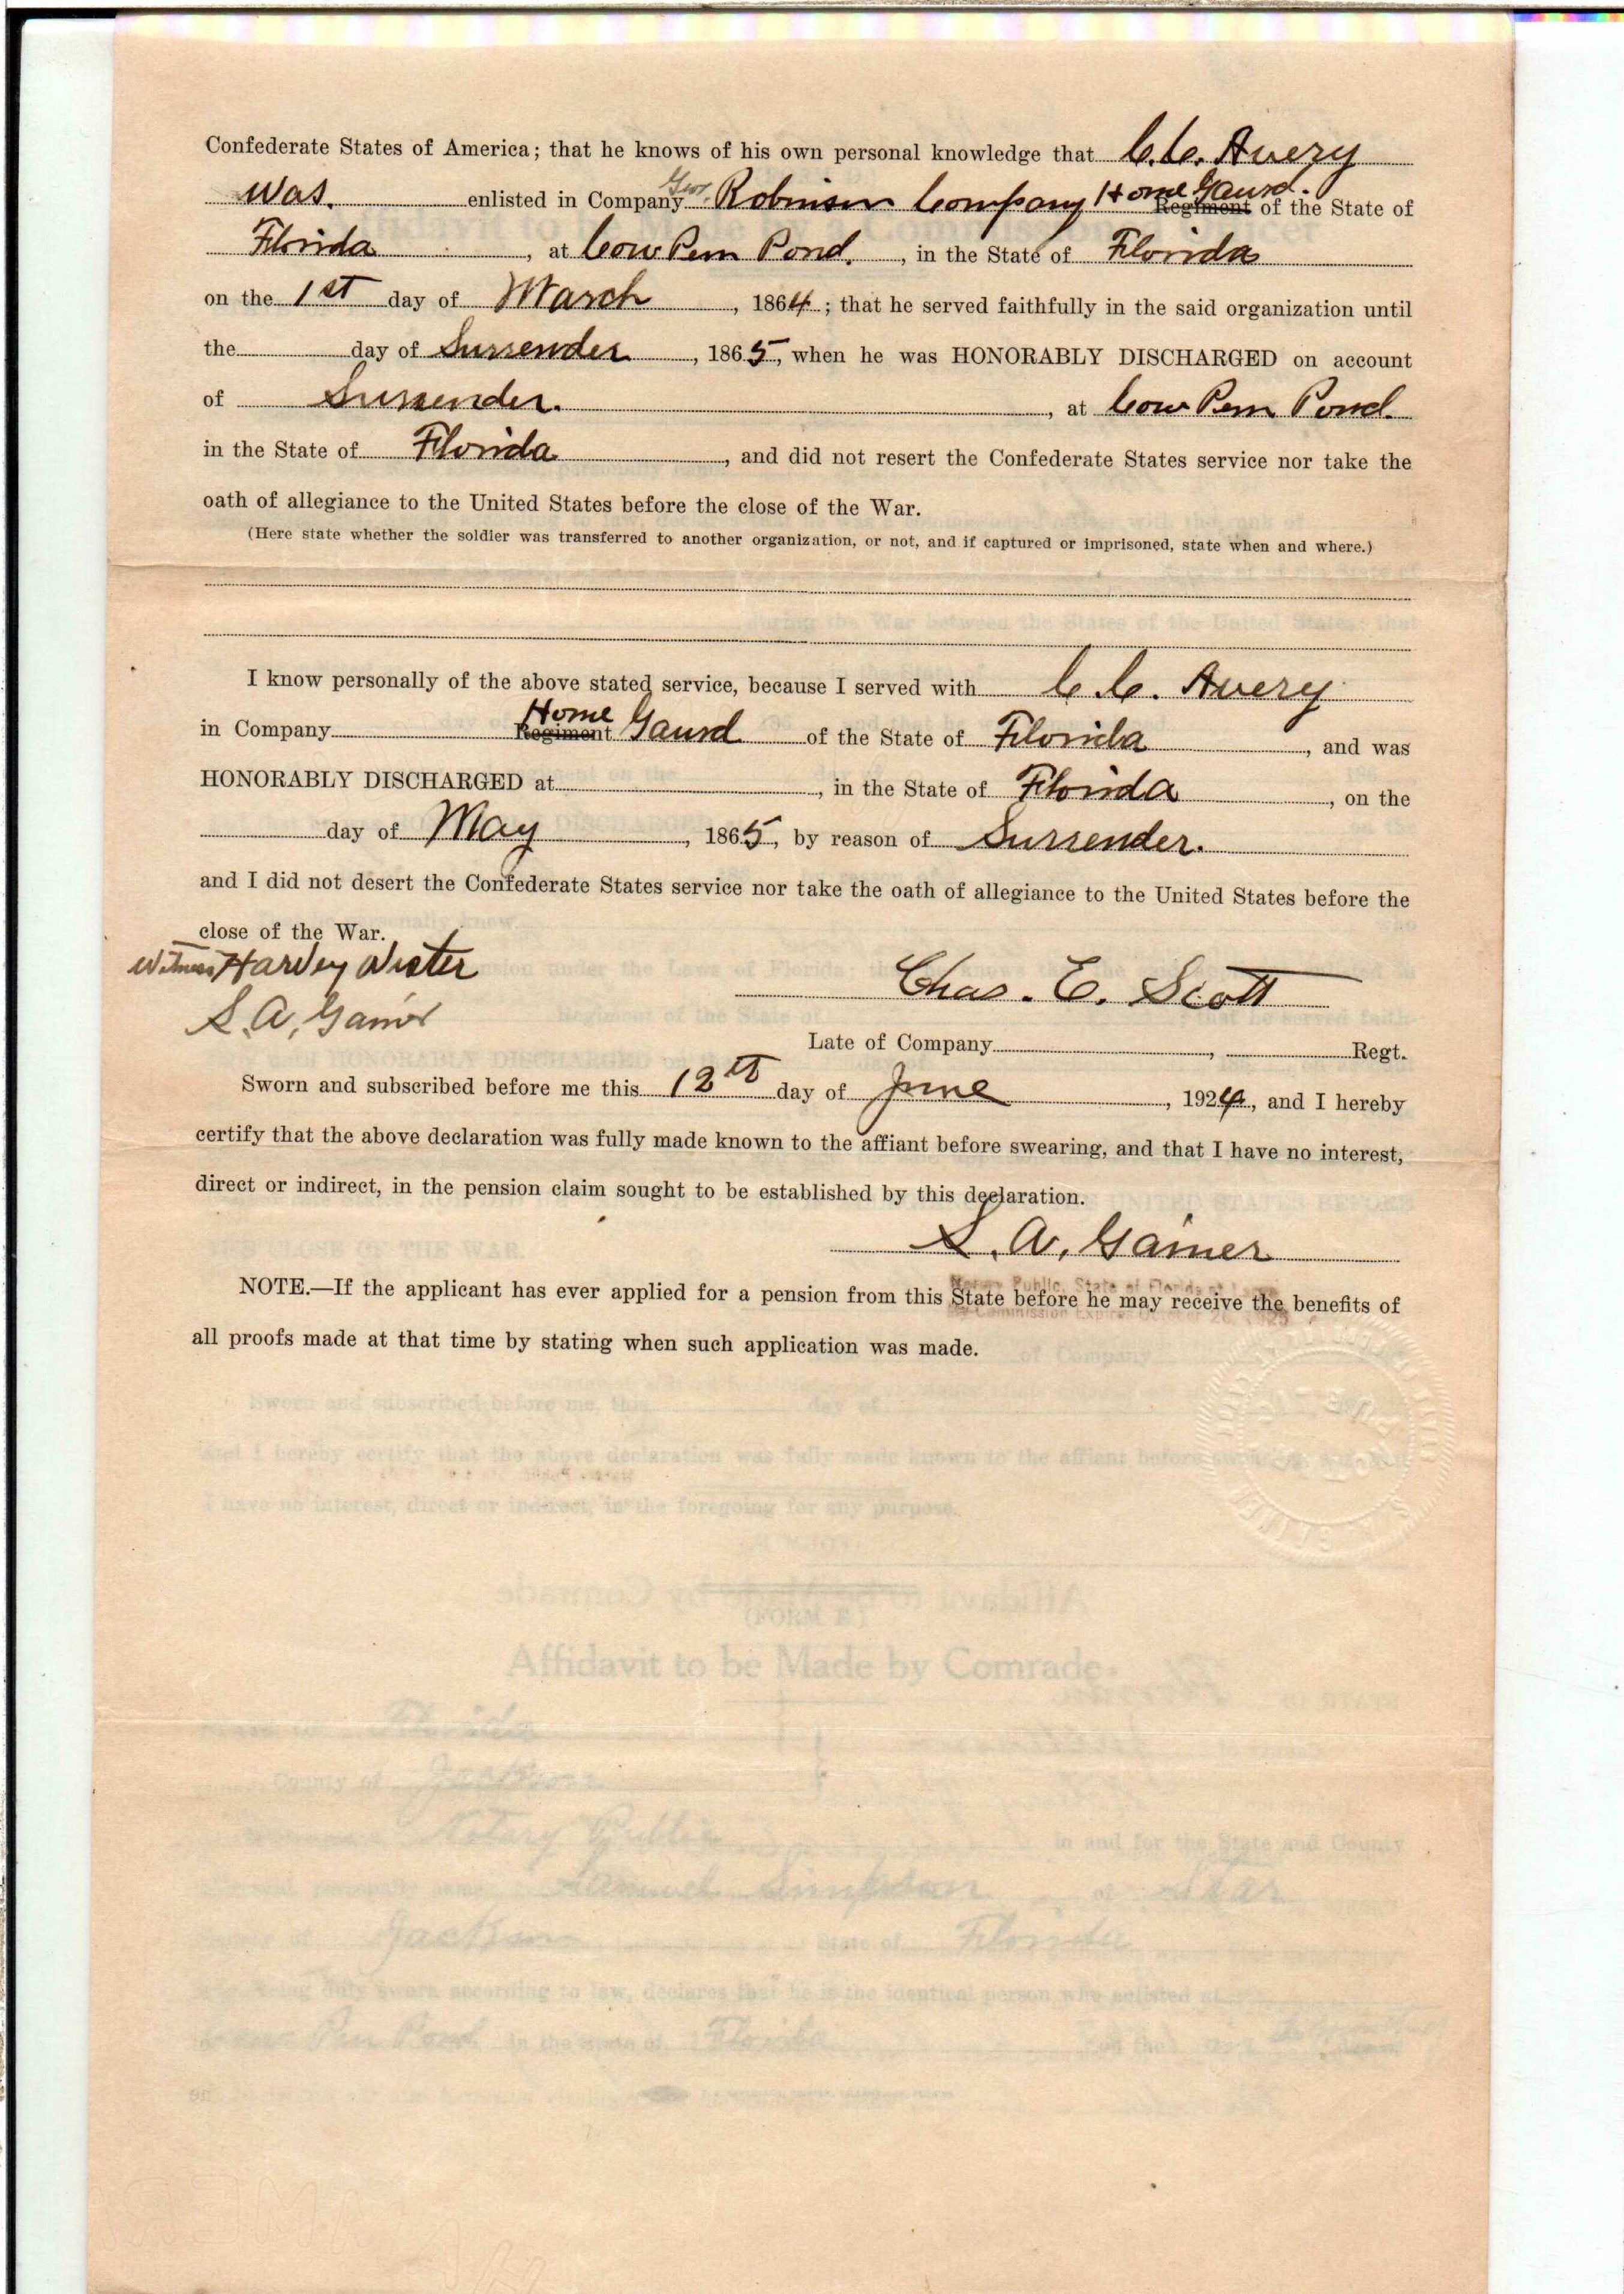 Confederate States of America; that he knows of his own personal knowledge that C. C. Avery
was. enlisted in Company Geo. Robinson Company Home Gaurd. Regiment of the State of
Florida, at Cow Pen Pond., in the State of Florida
on the 1st day of March, 1864; that he served faithfully in the said organization until
the day of Surrender, 1865, when he was HONORABLY DISCHARGED on account
of Surrender., at Cow Pen Pond.
in the State of Florida, and did not resert the Confederate States service nor take the
oath of allegiance to the United States before the close of the War.
(Here state whether the soldier was transferred to another organization, or not, and if captured or imprisoned, state when and where.)
I know personally of the above stated service, because I served with C. C. Avery
in Company Regiment Home Gaurd of the State of Florida, and was
HONORABLY DISCHARGED at, in the State of Florida, on the
day of May, 1865, by reason of Surrender.
and I did not desert the Confederate States service nor take the oath of allegiance to the United States before the
close of the War.
Witness Harvey Wester
S. A. Gainer
Chas. E. Scott
Late of Company, Regt.
Sworn and subscribed before me this 12th day of June, 1924, and I hereby
certify that the above declaration was fully made known to the affiant before swearing, and that I have no interest,
direct or indirect, in the pension claim sought to be established by this declaration.
S. A. Gainer
Notary Public, State of Florida at Large
Commission Expires October 26, 1925
NOTE.—If the applicant has ever applied for a pension from this State before he may receive the benefits of
all proofs made at that time by stating when such application was made.